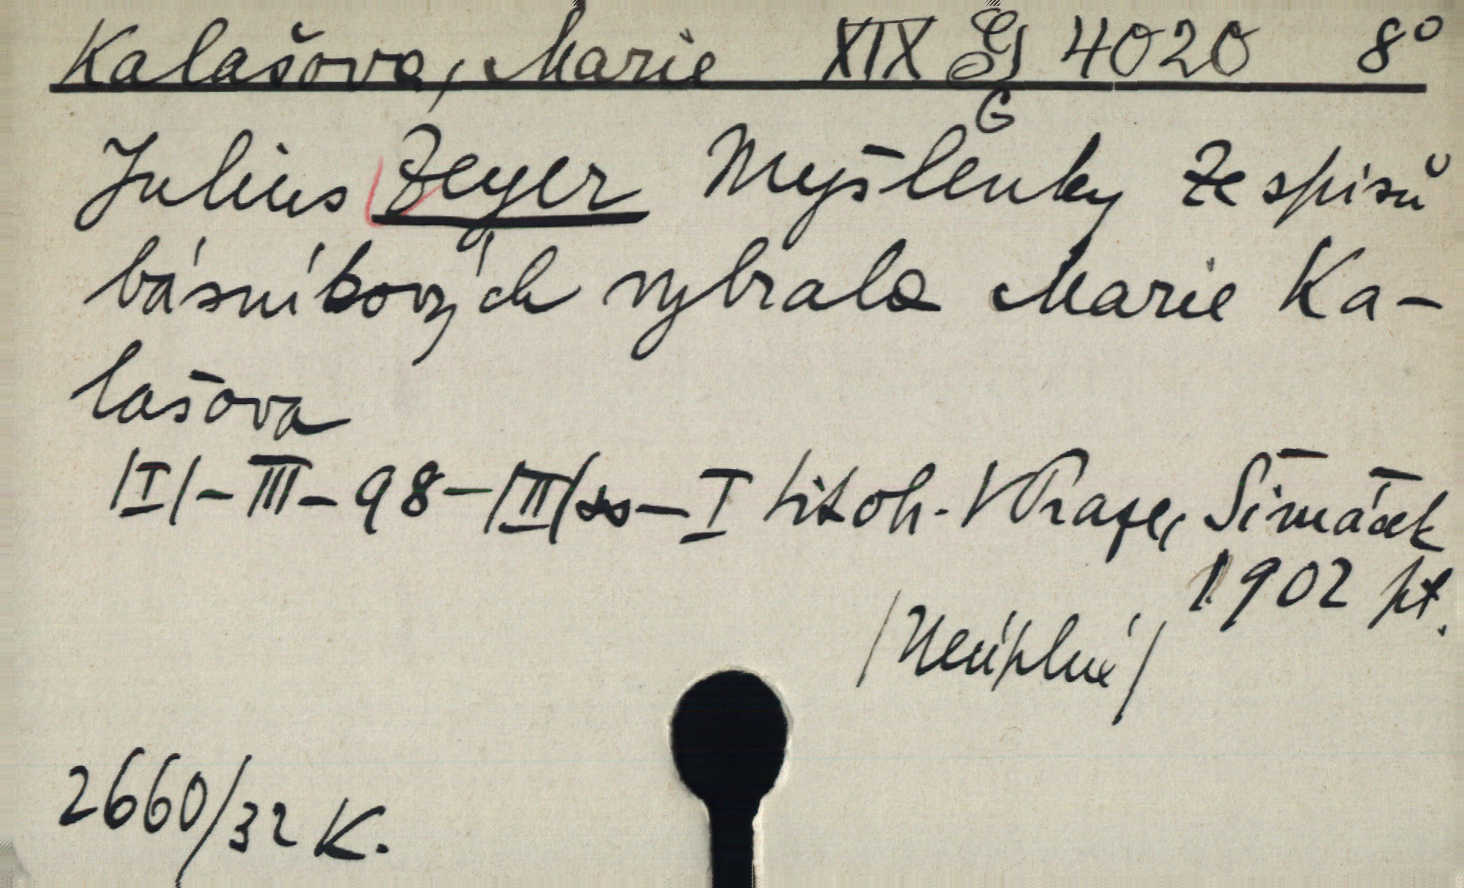 Kalašova, Marie XIX G 4020 8°
G
Julius Zeyer Myšlenky ze spisů
básníkových vybrala Marie Ka-
lašova
/I/-III-98-/III/ -I litoh. V Praze, Šimáček
1902 pt.
/Neúplné/
2660/32 K.